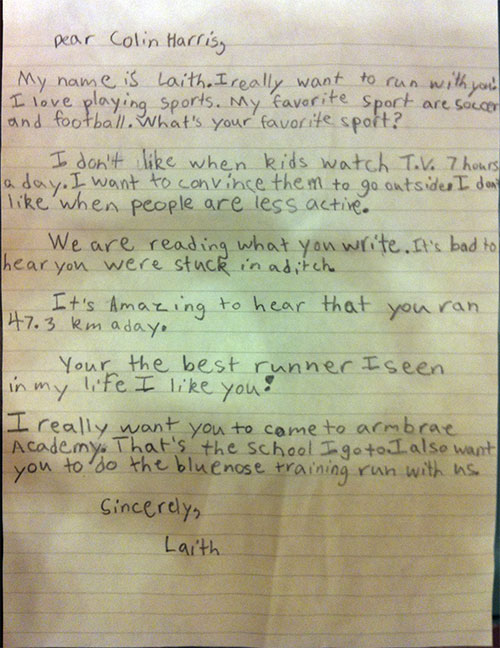 Dear Colin Harris,
My name is Laith. I really want to run with you.
I love playing sports. My favorite sport are soccer
and football. What's your favorite sport?
I don't like when kids watch T.V. 7 hours
a day. I want to convince them to go outside. I don't
like when people are less active.
We are reading what you write. It's bad to
hear you were stuck in a ditch.
It's Amazing to hear that you ran
47.3 km a day.
Your the best runner I seen
in my life I like you!
I really want you to come to armbrae
Academy. That's the school I go to. I also want
you to do the bluenose training run with us.
Sincerely,
Laith